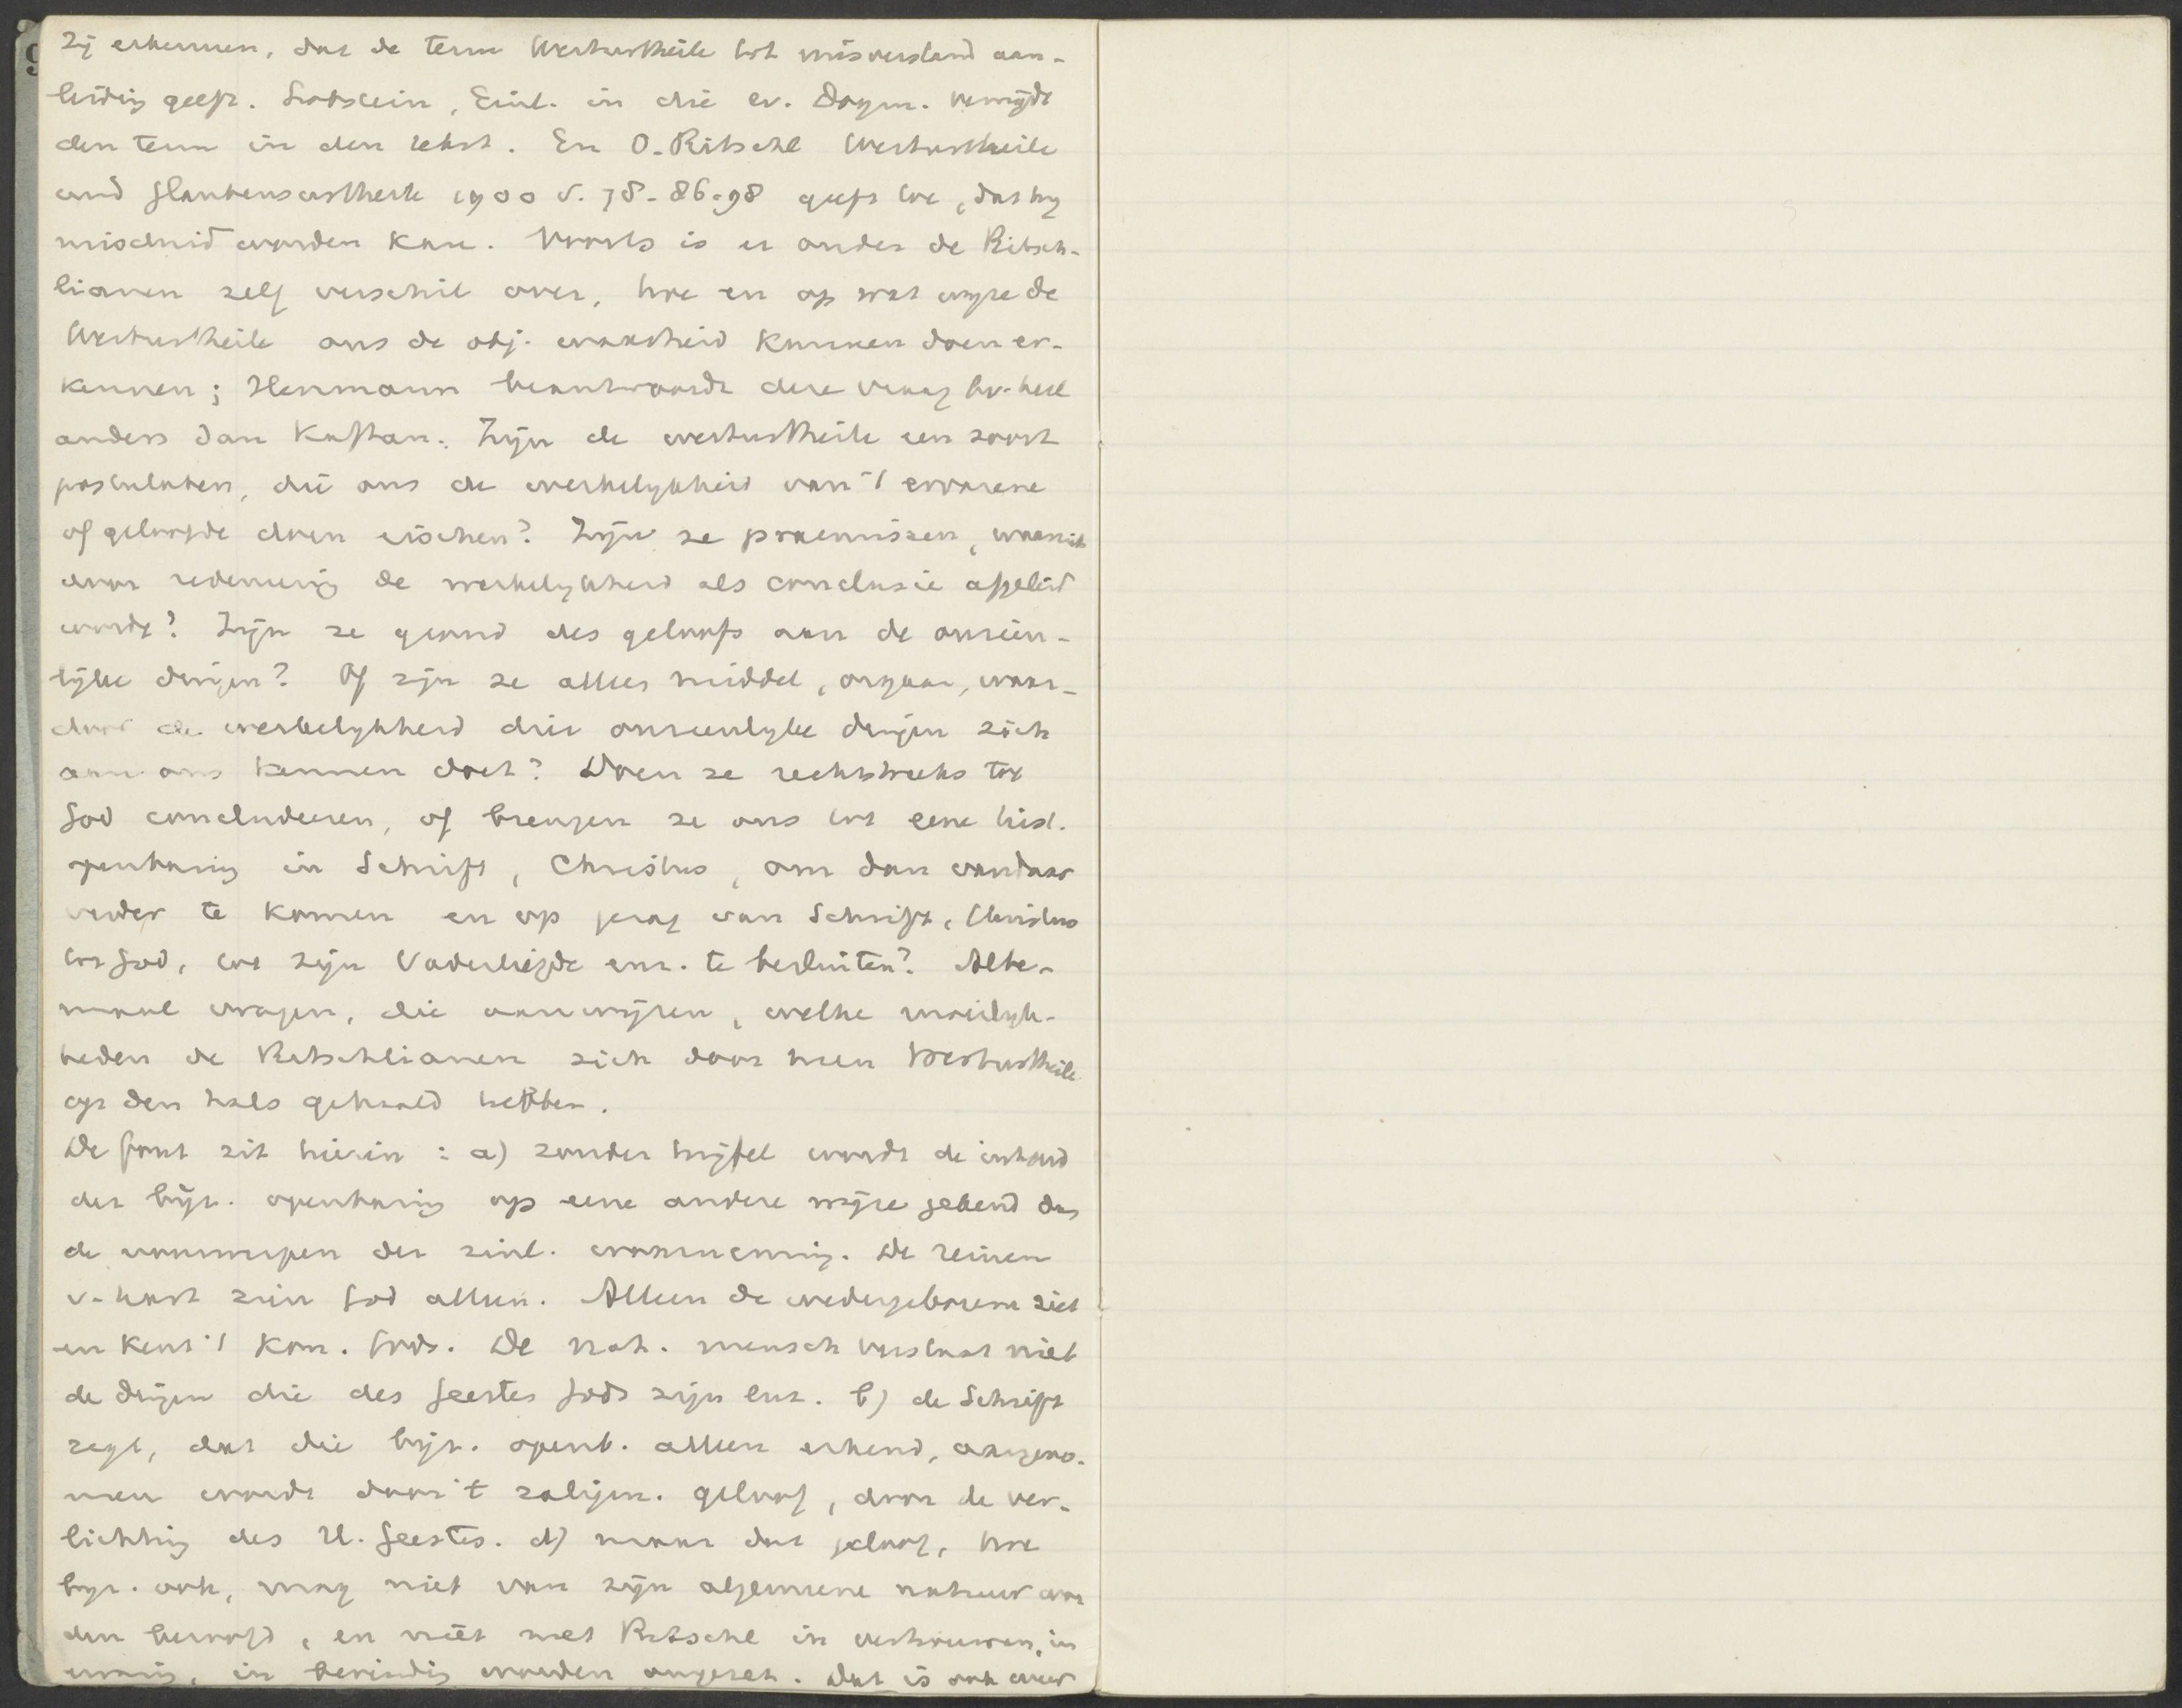 Zij erkennen, dat de term Werturtheile tot misverstand aan-
leiding geeft. Lobstein, Einl. in die ev. Dogm. vermijdt
den term in den tekst. En O. Ritschl Werturtheile
und Glaubensurtheile 1900 S. 78-86-98 geeft toe, dat hij
misduid worden kan. Voorts is er onder de Ritsch-
lianen zelf verschil over, hoe en op wat wijze de
Werturtheile ons de obj. waarheid kunnen doen er-
kennen; Herrmann beantwoordt deze vraag bv. heel
anders dan Kaftan. Zijn de werturtheile een soort
postulaten, die ons de werkelijkheid van 't ervarene
of geloofde doen eischen? Zijn ze praemissen, waaruit
door redeneering de werkelijkheid als conclusie afgeleid
wordt? Zijn ze grond des geloofs aan de onzien-
lijke dingen? Of zijn ze alleen middel, orgaan, waar-
door de werkelijkheid dier onzienlijke dingen zich
aan ons kennen doet? Doen ze rechtstreeks tot
God concludeeren, of brengen ze ons tot eene hist.
openbaring in Schrift, Christus, om dan vandaar
verder te komen en op grond van Schrift, Christus
tot God, tot zijn Vaderliefde enz. te besluiten? Alte-
maal vragen, die aanwijzen, welke moeilijk-
heden de Ritschlianen zich door hun Werturtheile
op den hals gehaald hebben.
De fout zit hierin: a) zonder twijfel wordt de inhoud
der bijz. openbaring op eene andere wijze gekend dan
de voorwerpen der zinl. waarneming. De reinen
v. hart zien God alleen. Alleen de wedergeborene ziet
en kent 't Kon. Gods. De nat. mensch verstaat niet
de dingen die des Geestes Gods zijn enz. b) de Schrift
zegt, dat die bijz. openb. alleen erkend, aangeno-
men wordt door 't zaligm. geloof, door de ver-
lichting des H. Geestes. d) maar dat geloof, hoe
bijz. ook, mag niet van zijn algemeene natuur wor
den beroofd, en niet met Ritschl in vertrouwen, in
ervaring, in bevinding worden omgezet. Dat is ook weer